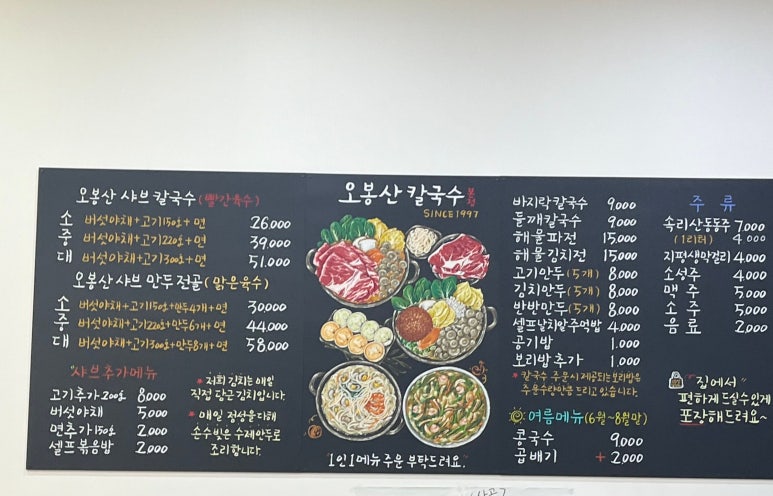 오봉산 샤브 칼국수 (빨간육수)
소 버섯야채+고기150g+면 26.000
중 버섯야채+고기220g+면 39.000
대 버섯야채+고기300g+면 51.000
오봉산 샤브 만두전골 (맑은육수)
소 버섯야채+고기150g+만두4개+면 30000
중 버섯야채+고기220g+만두6개+면 44.000
대 버섯야채+고기300g+만두8개+면 58.000
"샤브추가메뉴
고기추가 200g 8000
버섯야채 5,000
면추가 150g 2.000
셀프볶음밥 2.000
* 저희 김치는 매일
직접 담근 김치입니다.
* 매일 정성을 다해
손수빚은 수제만두로
조리합니다.
오봉산 칼국수 본점
SINCE 1997
"1인 1메뉴 주문 부탁드려요."
바지락칼국수 9,000
들깨칼국수 9.000
해물파전 15,000
해물김치전 15.000
고기만두 (5개) 8,000
김치만두 (5개) 8,000
반반만두 (5개) 8,000
셀프날치알주먹밥 4.000
공기밥 1.000
보리밥 추가 1,000
* 칼국수 주문시 제공되는 보리밥은
주문수량만큼 드리고 있습니다.
여름메뉴 (6월~8월말)
콩국수 9,000
곱배기 +2,000
주 류
속리산동동주 7,000
(1리터) 4000
지평생막걸리 4,000
소성주 4,000
맥 주 5,000
소 주 5,000
음 료 2,000
"집에서"
편하게 드실수있게
포장해드려요~